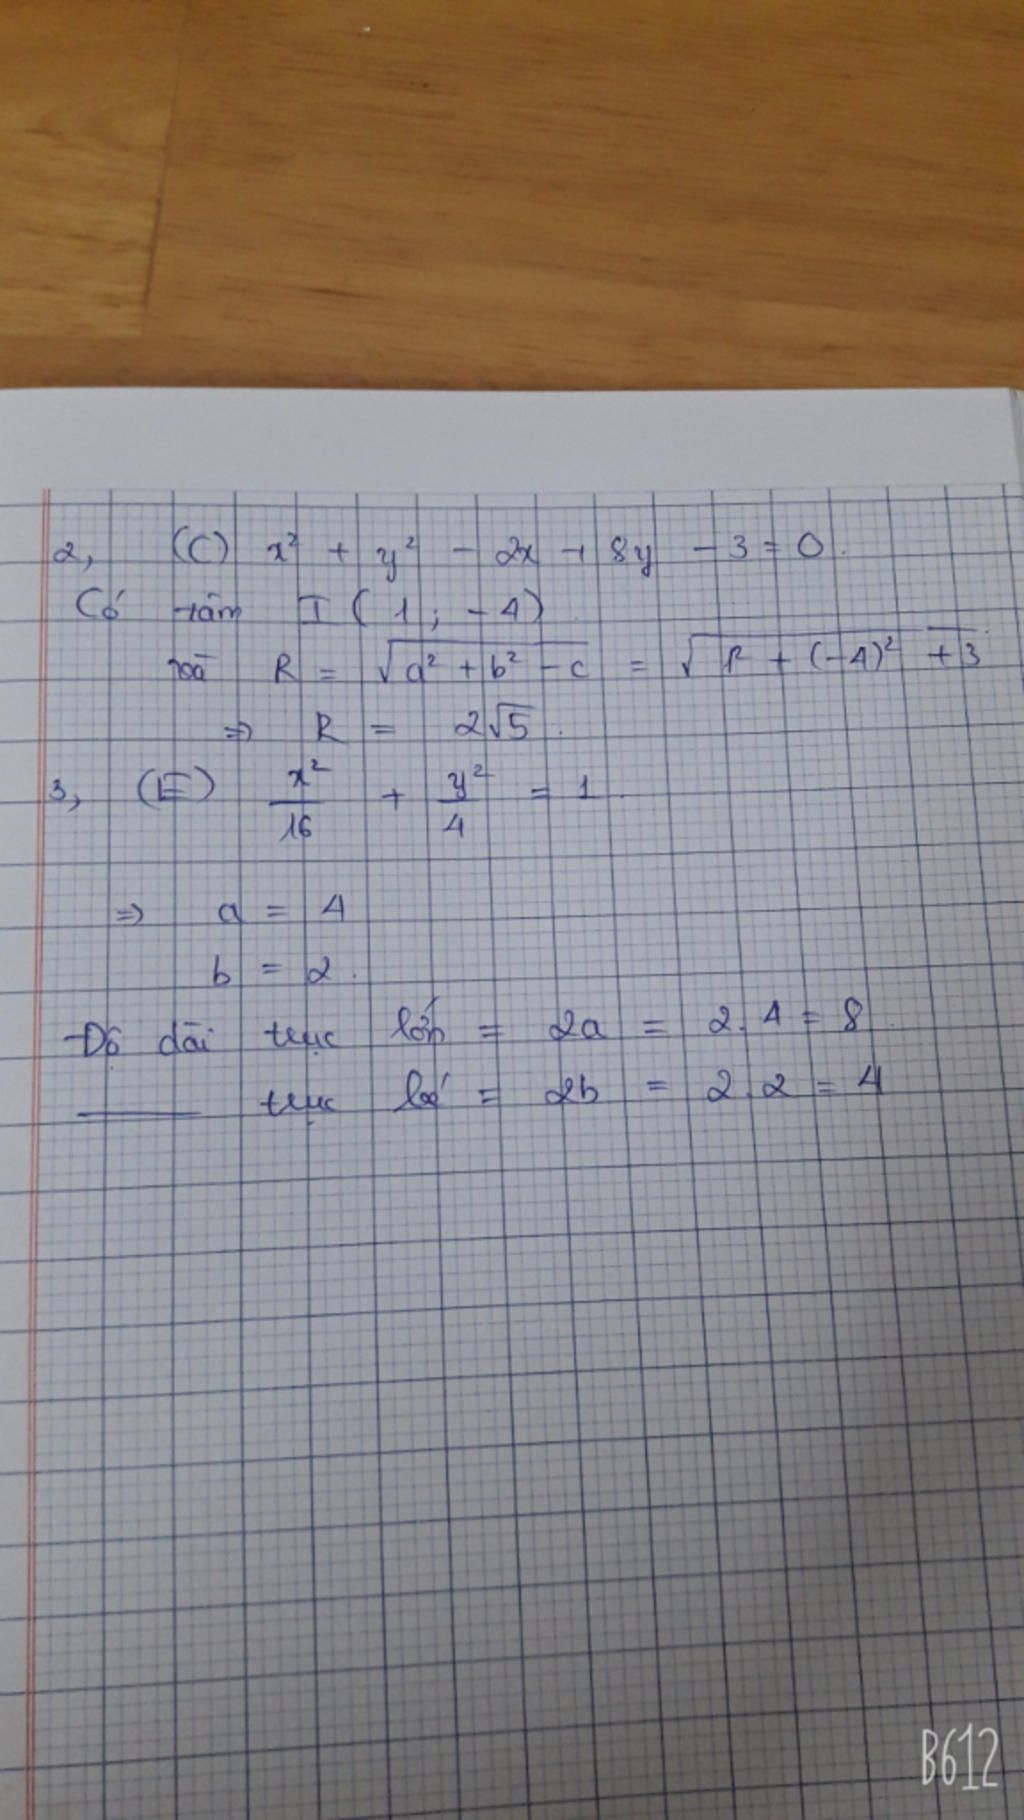 2, (C) x² + y² - 2x + 8y - 3 = 0.
Có tâm I ( 1 ; -4)
và R = √(a² + b² - c) = √(1² + (-4)² + 3)
⇒ R = 2√5.
3, (E) x²/16 + y²/4 = 1
⇒ a = 4
b = 2.
Độ dài trục lớn = 2a = 2.4 = 8.
trục = 2b = 2.2 = 4
B612